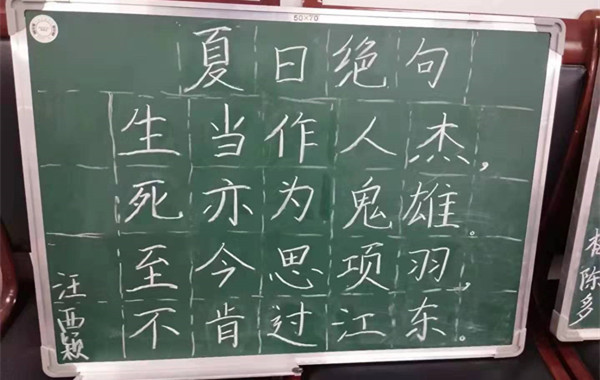 50×70
夏日绝句
生当作人杰,
死亦为鬼雄。
至今思项羽,
不肯过江东。
汪西颖
陈多